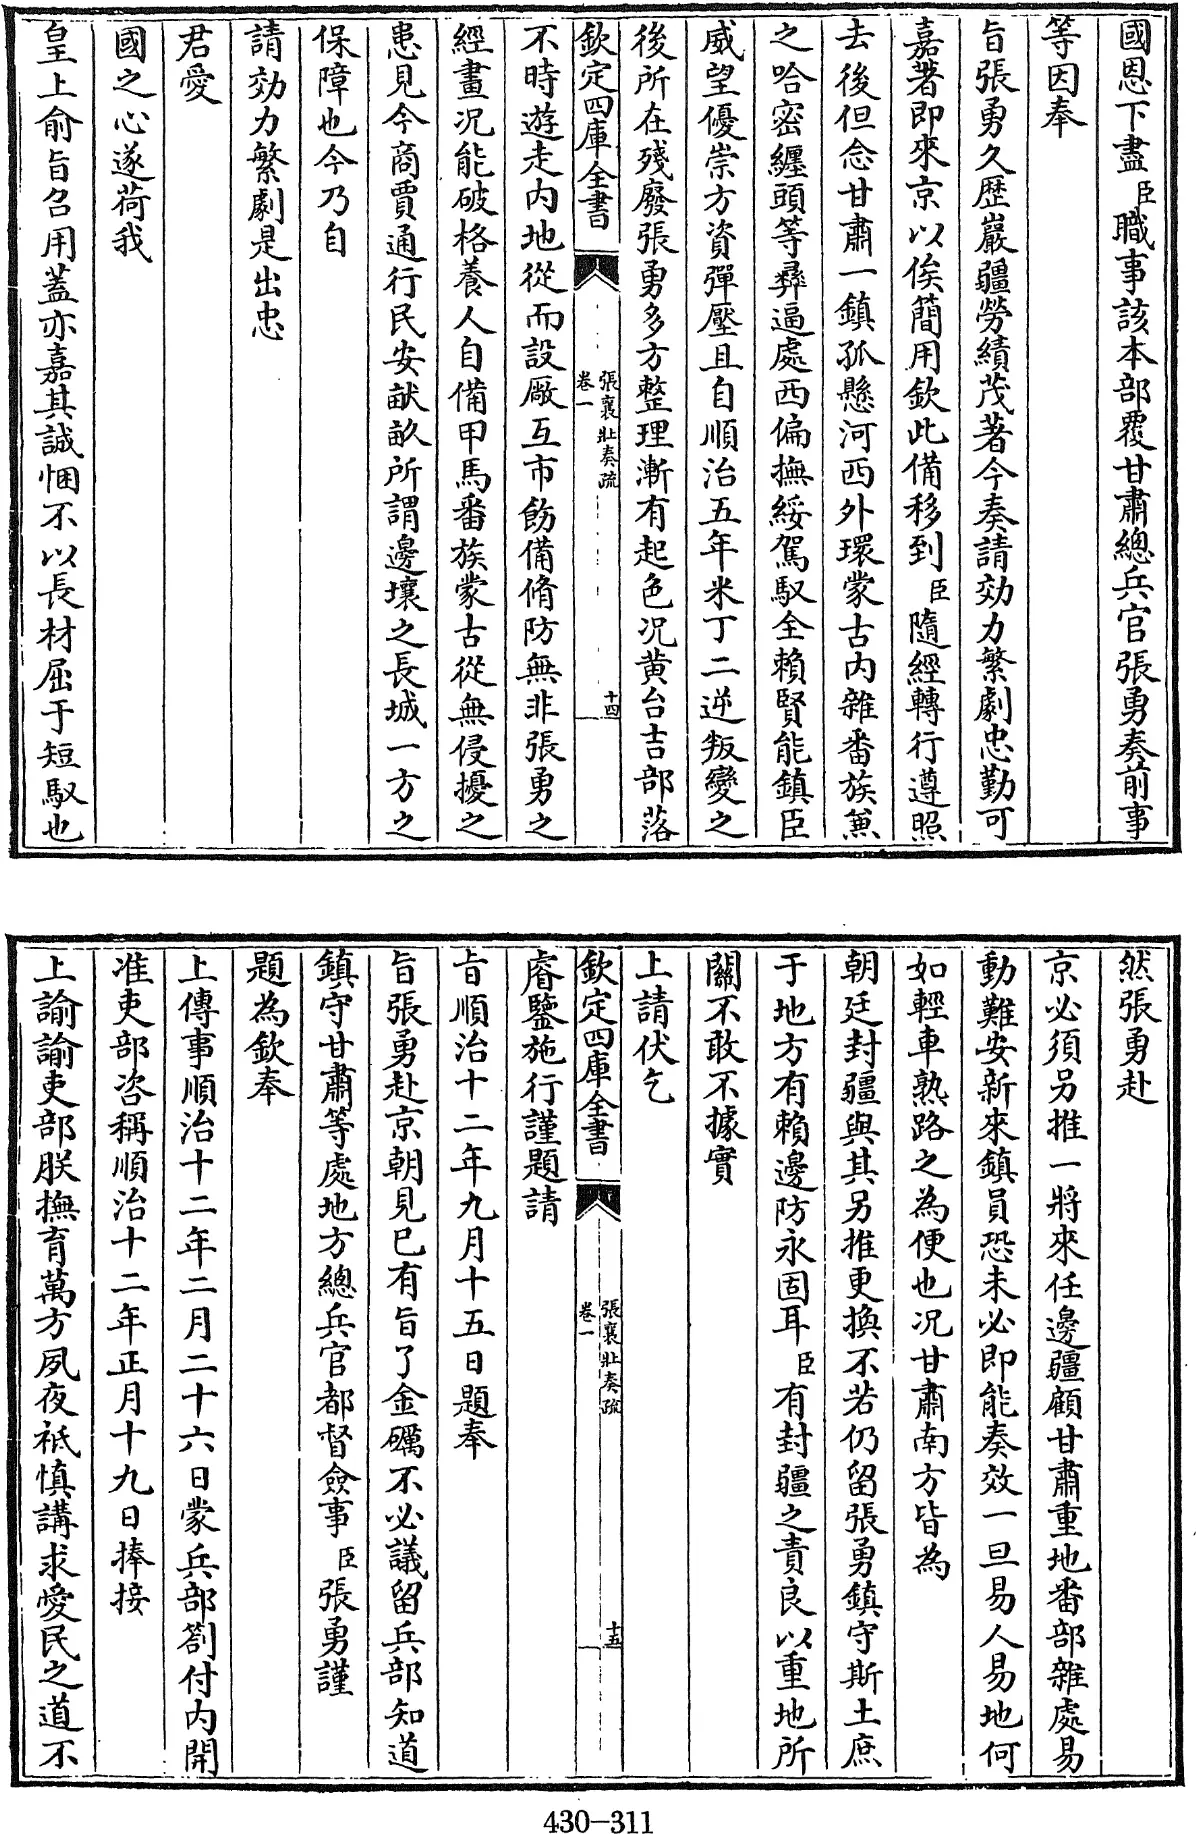 國恩下盡臣職事該本部覆甘肅總兵官張勇奏前事
等因奉
旨張勇久歴巖疆勞績茂著今奏請効力繁劇忠勤可
嘉著即來京以俟簡用欽此備移到臣隨經轉行遵照
去後但念甘肅一鎮孤懸河西外環蒙古内雜番族兼
之哈密纏頭等彝逼處西偏撫綏駕馭全賴賢能鎮臣
威望優崇方資彈壓且自順治五年米丁二逆叛變之
後所在殘廢張勇多方整理漸有起色况黄台吉部落
欽定四庫全書
張襄壯奏疏
卷一
十四
不時遊走内地從而設厰互市飭備脩防無非張勇之
經畫况能破格養人自備甲馬番族蒙古從無侵擾之
患見今商賈通行民安畎畝所謂邊壤之長城一方之
保障也今乃自
請効力繁劇是出忠
君愛
國之心遂荷我
皇上俞旨召用葢亦嘉其誠悃不以長材屈于短馭也
然張勇赴
京必須另推一將來任邊疆顧甘肅重地番部雜處易
動難安新來鎮員恐未必即能奏效一旦易人易地何
如輕車熟路之為便也况甘肅南方皆為
朝廷封疆與其另推更換不若仍留張勇鎮守斯土庶
于地方有賴邊防永固耳臣有封疆之責良以重地所
關不敢不據實
上請伏乞
欽定四庫全書
張襄壯奏疏
卷一
十五
睿鑒施行謹題請
旨順治十二年九月十五日題奉
旨張勇赴京朝見已有旨了金礪不必議留兵部知道
鎮守甘肅等處地方總兵官都督僉事臣張勇謹
題為欽奉
上傳事順治十二年二月二十六日蒙兵部劄付内開
准吏部咨稱順治十二年正月十九日捧接
上諭諭吏部朕撫育萬方夙夜祗慎講求愛民之道不
430-311